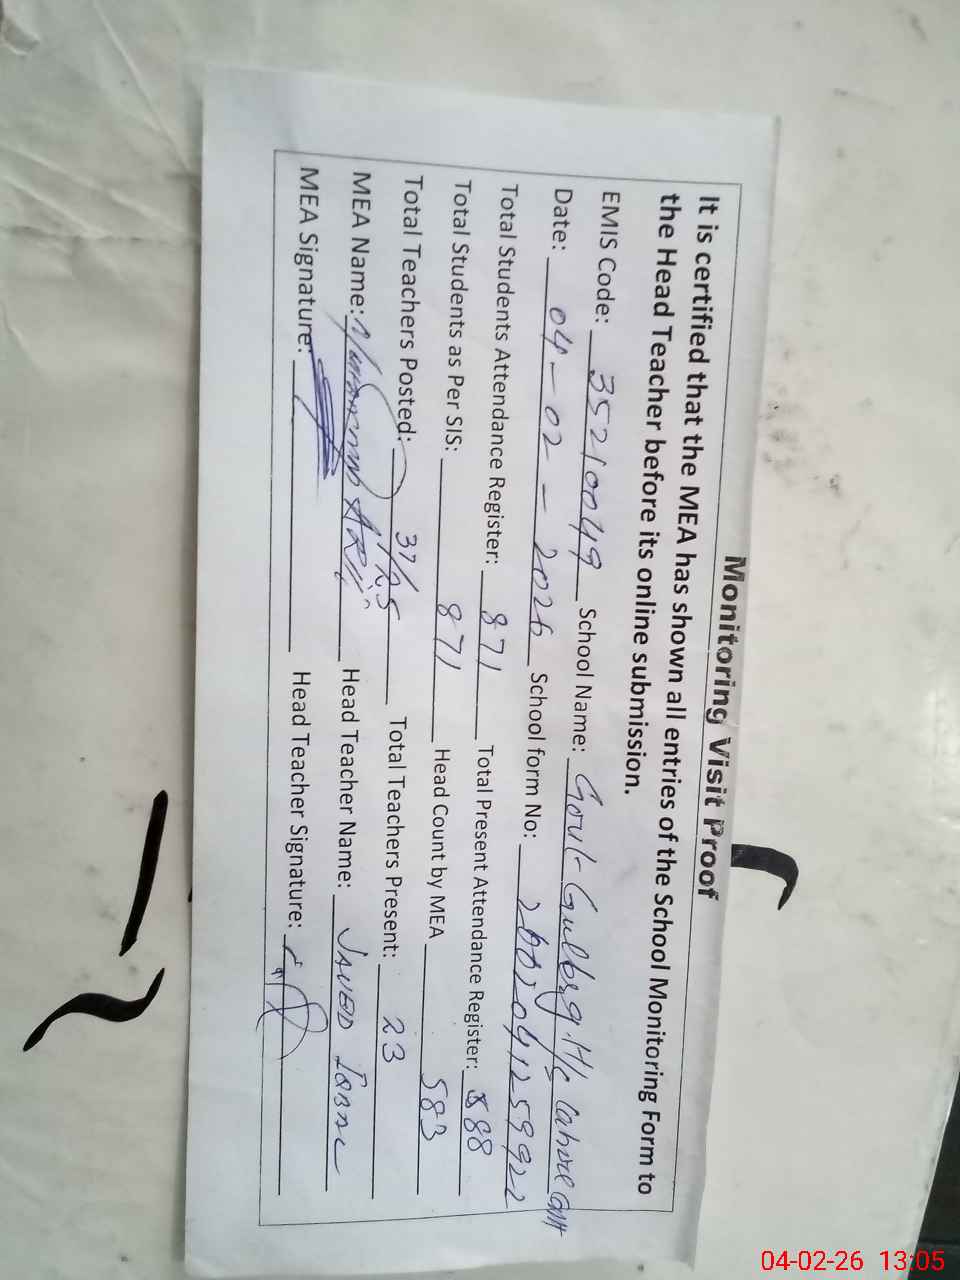 Monitoring Visit Proof
It is certified that the MEA has shown all entries of the School Monitoring Form to
the Head Teacher before its online submission.
EMIS Code: 35210049 School Name: Govt Gulberg H/S Lahore Cantt
Date: 04-02-2026 School form No:
Total Students Attendance Register: 871 Total Present Attendance Register: 588
Total Students as Per SIS: 871 Head Count by MEA 583
Total Teachers Posted: 37/25 Total Teachers Present: 23
MEA Name: Muhammad Head Teacher Name: JAVED IQBAL
MEA Signature: Head Teacher Signature:
04-02-26 13:05